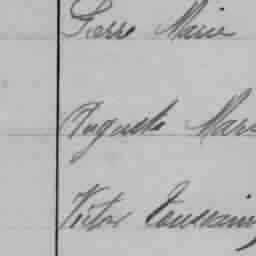 Pierre Marie
Auguste Mari
Victor Toussaint